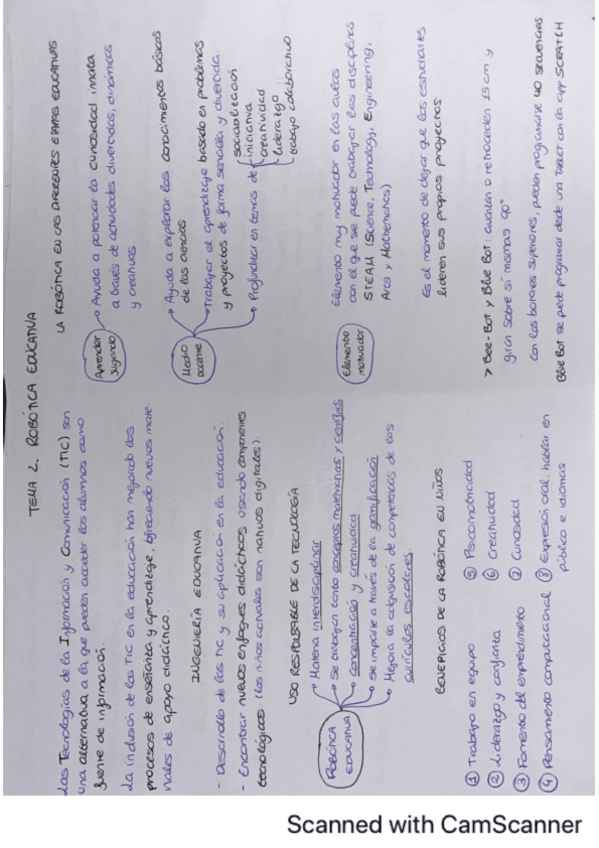 TEMA 2. ROBÓTICA EDUCATIVA
Las Tecnologías de la Información y Comunicación (TIC) son
una alternativa a la que pueden acceder los alumnos como
fuente de información.
La inclusión de las TIC en la educación han mejorado los
procesos de enseñanza y aprendizaje, ofreciendo nuevos mate-
riales de apoyo didáctico.
INGENIERÍA EDUCATIVA
- Desarrollo de las TIC y su aplicación en la educación.
- Encontrar nuevos enfoques didácticos usando componentes
tecnológicos (los niños actuales son nativos digitales).
USO RESPONSABLE DE LA TECNOLOGÍA
ROBÓTICA
EDUCATIVA
Materia interdisciplinar
Se trabajan tanto conceptos matemáticos y científicos
Concentración y creatividad
Se imparte a través de la gamificación
Mejora la adquisición de competencias de los
currículos escolares.
BENEFICIOS DE LA ROBÓTICA EN NIÑOS
① Trabajo en equipo
② Liderazgo y confianza
③ Fomento del emprendimiento
④ Pensamiento computacional
⑤ Psicomotricidad
⑥ Creatividad
⑦ Curiosidad
⑧ Expresión oral, hablar en
público e idiomas
LA ROBÓTICA EN LAS DIFERENTES ETAPAS EDUCATIVAS
Aprender
jugando
Ayuda a potenciar la curiosidad innata
a través de actividades divertidas, dinámicas
y creativas
Medio
docente
Ayuda a explorar los conocimientos básicos
de las ciencias
Trabajar el aprendizaje basado en problemas
y proyectos de forma sencilla y divertida.
Profundizar en temas de
sociabilización
iniciativa
creatividad
liderazgo
trabajo colaborativo
Elemento
motivador
Elemento muy motivador en las aulas
con el que se puede trabajar las disciplinas
STEAM (Science, Technology, Engineering,
Arts y Mathematics)
Es el momento de dejar que los estudiantes
lideren sus propios proyectos
> Bee-Bot y Blue Bot: avanzan o retroceden 15 cm y
giran sobre si mismas 90°
Con los botones superiores, pueden programarse 40 secuencias
Blue Bot se puede programar desde una TABLET con la app SCRATCH
Scanned with CamScanner